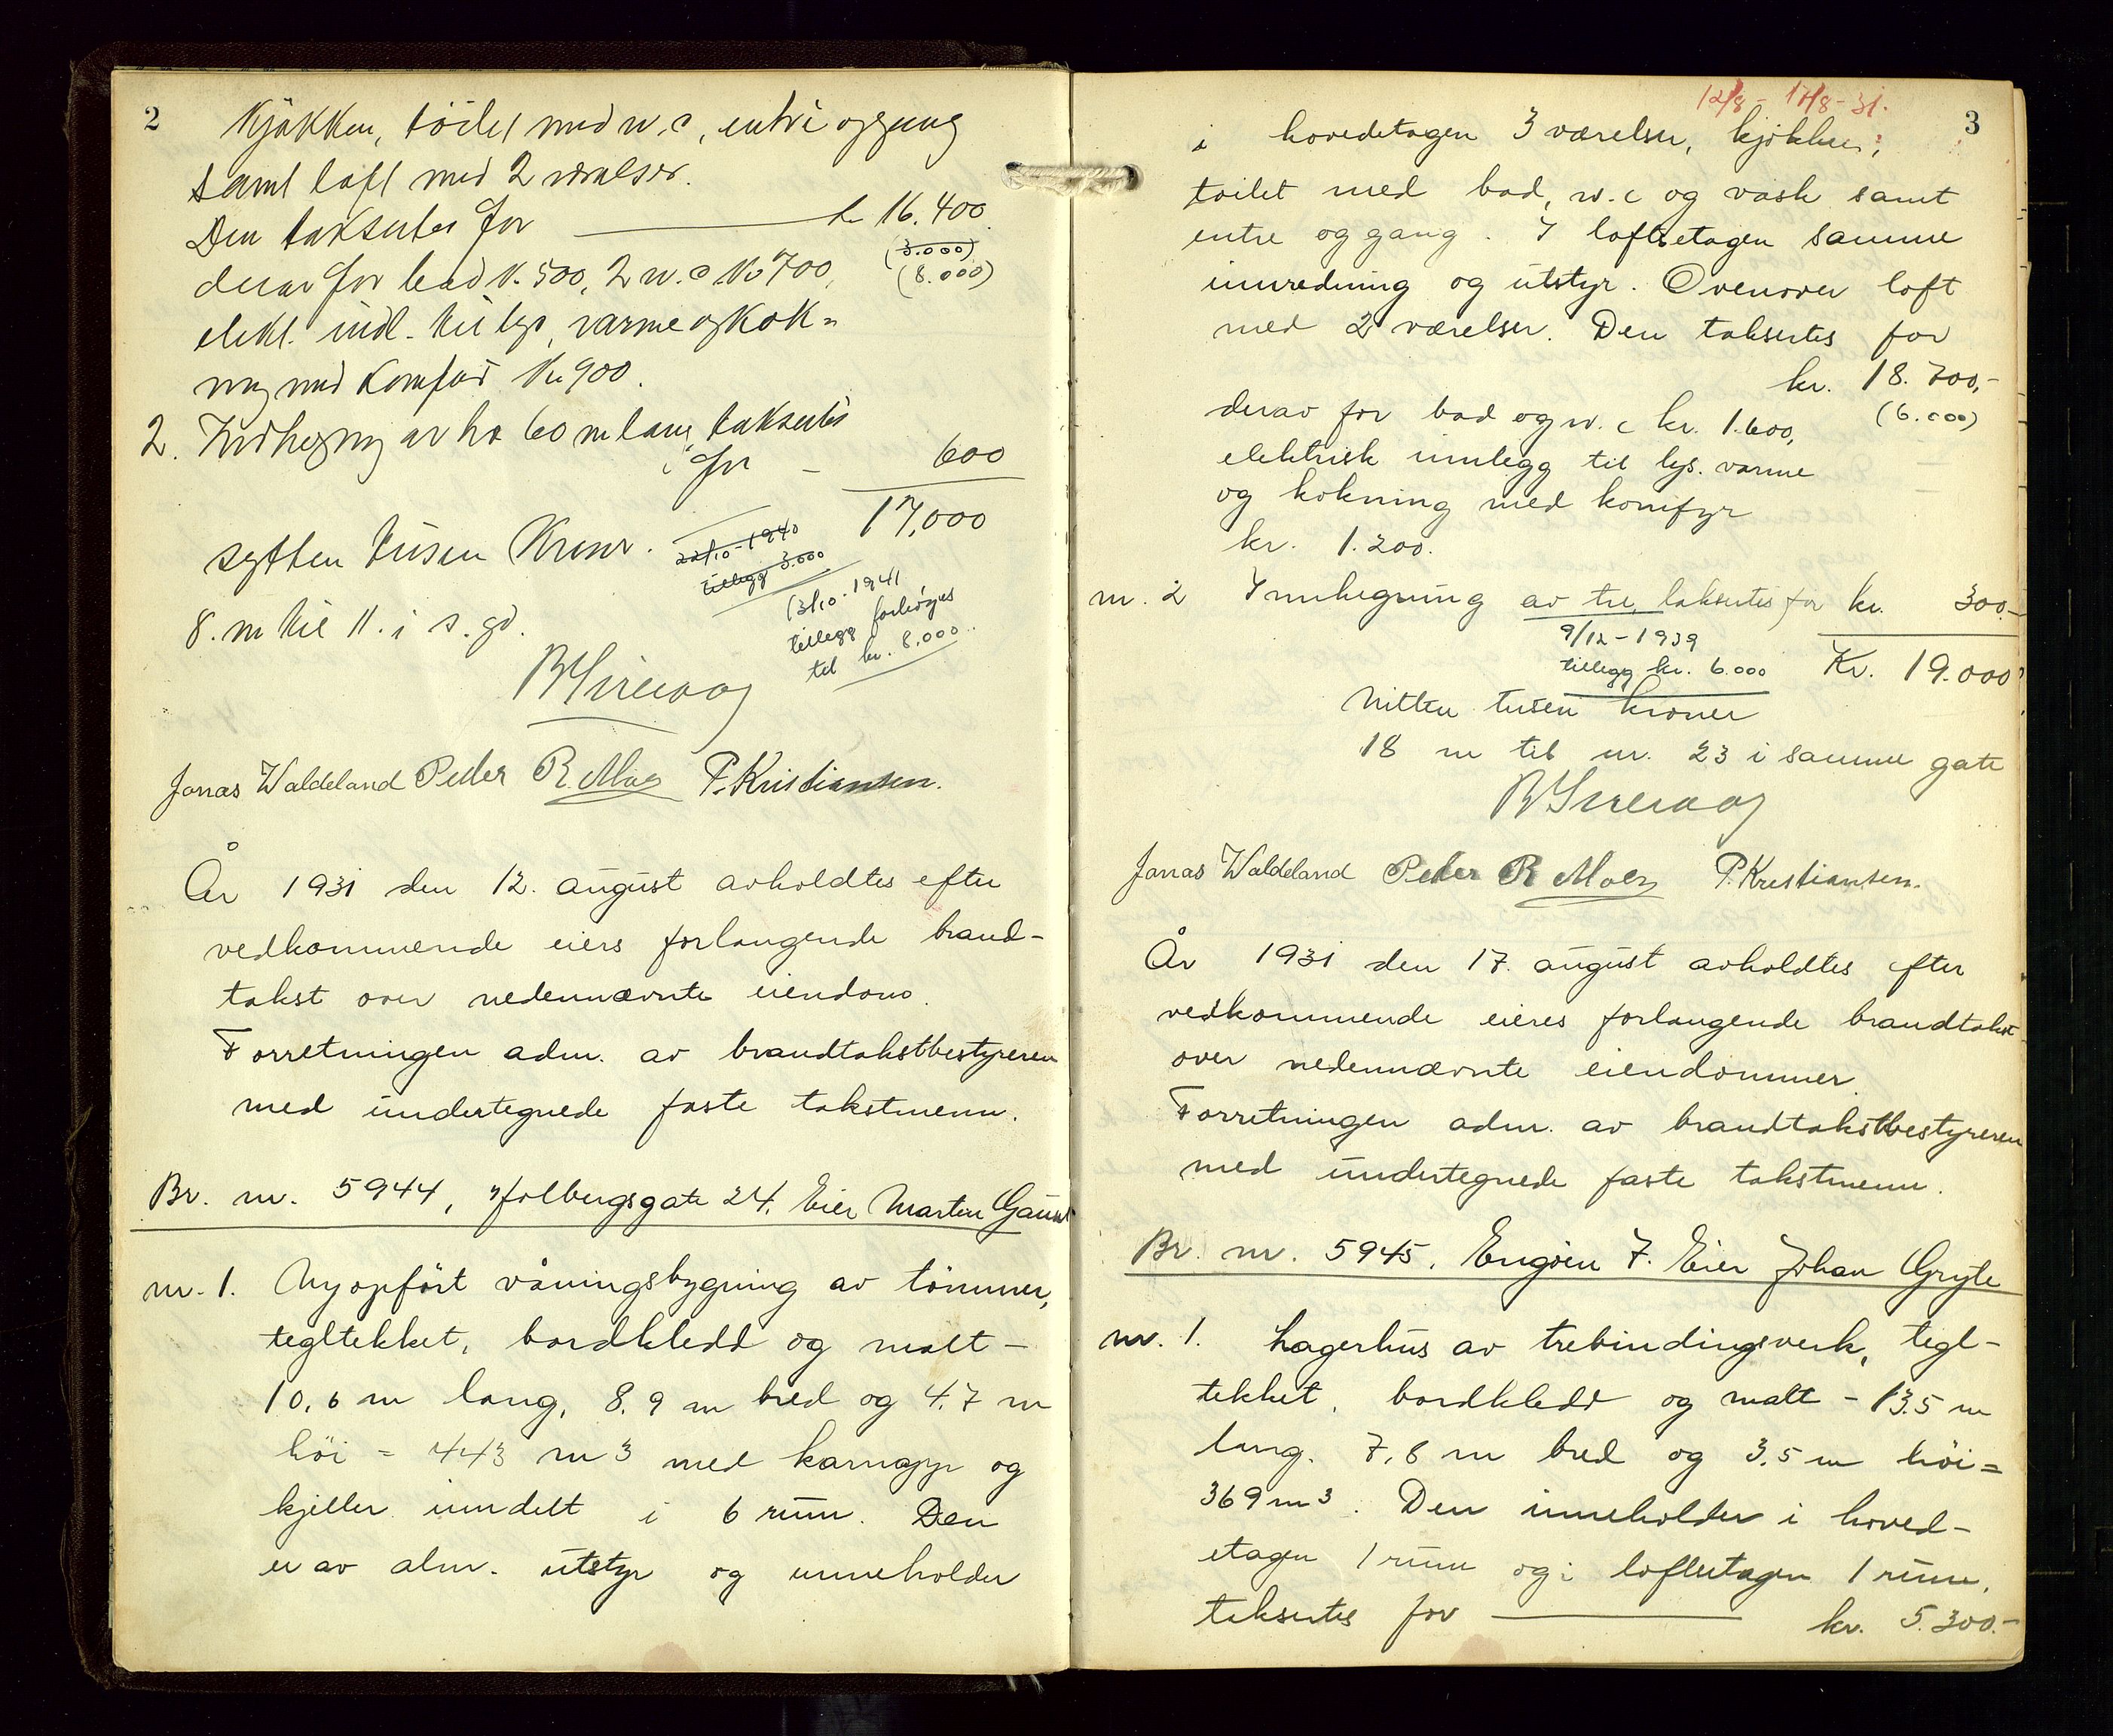 2
Kjøkken, töilet med w.c, entré og gang
samt loft med 2 værelser.
Den takseres for kr 16.400
(3.000)
derav for bad k. 500, 2 w.c Kr 700,
(8.000)
elekt. indl. til lys, varme og kok-
ning med Komfur Kr 900.
2. Indhegning av tre 60 m lang, takseres
for - 600
17,000
sytten tusen Kroner.
22/10-1940
tillegg 3.000
13/10-1941
tillegg forhøyes
til kr. 8.000.
8. m til 11. i s. gd.
B Sirevaag
Jonas Waldeland Peder R. Moen P. Kristiansen.
År 1931 den 12. august avholdtes efter
vedkommende eiers forlangende brand-
takst over nedennævnte eiendom.
Forretningen adm. av brandtakstbestyreren
med undertegnede faste takstmenn.
Br. nr. 5944, Holbergsgate 24, Eier Marten
nr. 1. Nyopført våningsbygning av tömmer,
tegltekket, bordkledd og malt -
10,6 m lang, 8,9 m bred og 4,7 m
höi = 443 m3 med karnapp og
kjeller inndelt i 6 rum. Den
er av alm. utstyr og inneholder
12/8 - 17/8 - 31.
3
i hovedetagen 3 værelser, kjøkken,
toilet med bad, w.c og vask samt
entre og gang. I loftsetagen samme
innredning og utstyr. Ovenover loft
med 2 værelser. Den takseres for
kr. 18.700,-
derav for bad og w.c kr. 1.600,
(6.000)
elektrisk innlegg til lys, varme
og kokning med komfyr
kr. 1.200.
nr. 2 Innhegning av tre, takseres for kr. 300.-
9/12-1939
tillegg kr. 6.000
Kr. 19.000
Nitten tusen kroner
18 m til nr. 23 i samme gate
B Sirevaag
Jonas Waldeland Peder R Moen P. Kristiansen.
År 1931 den 17. august avholdtes efter
vedkommende eieres forlangende brandtakst
over nedennævnte eiendommer.
Forretningen adm. av brandtakstbestyreren
med undertegnede faste takstmenn.
Br. nr. 5945, Engøen 7. Eier Johan Gryte
nr. 1. Lagerhus av trebindingsverk, tegl-
tekket, bordkledd og malt - 13,5 m
lang. 7,8 m bred og 3,5 m höi =
369 m3. Den inneholder i hoved-
etagen 1 rum og i loftsetagen 1 rum,
takseres for kr. 5.300.-